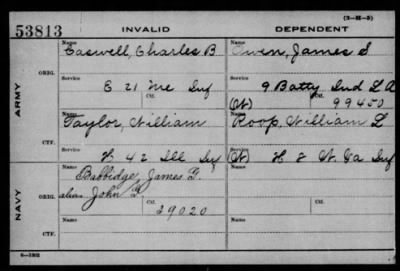 (3-M-5)
53813 INVALID DEPENDENT
Name Name
Caswell, Charles B Owen, James S
ARMY
ORIG.
Service Service
E 21 Me Inf 9 Batty Ind L A
Ctf. (W) Ctf. 99450
Name Name
Taylor, William Roop, William L
CTF.
Service Service
H 42 Ill Inf (W) H 2 W. Va Inf
NAVY
ORIG.
Name Name
Babbidge, James F.
alias John F
Ctf. Ctf.
29020
CTF.
Name Name